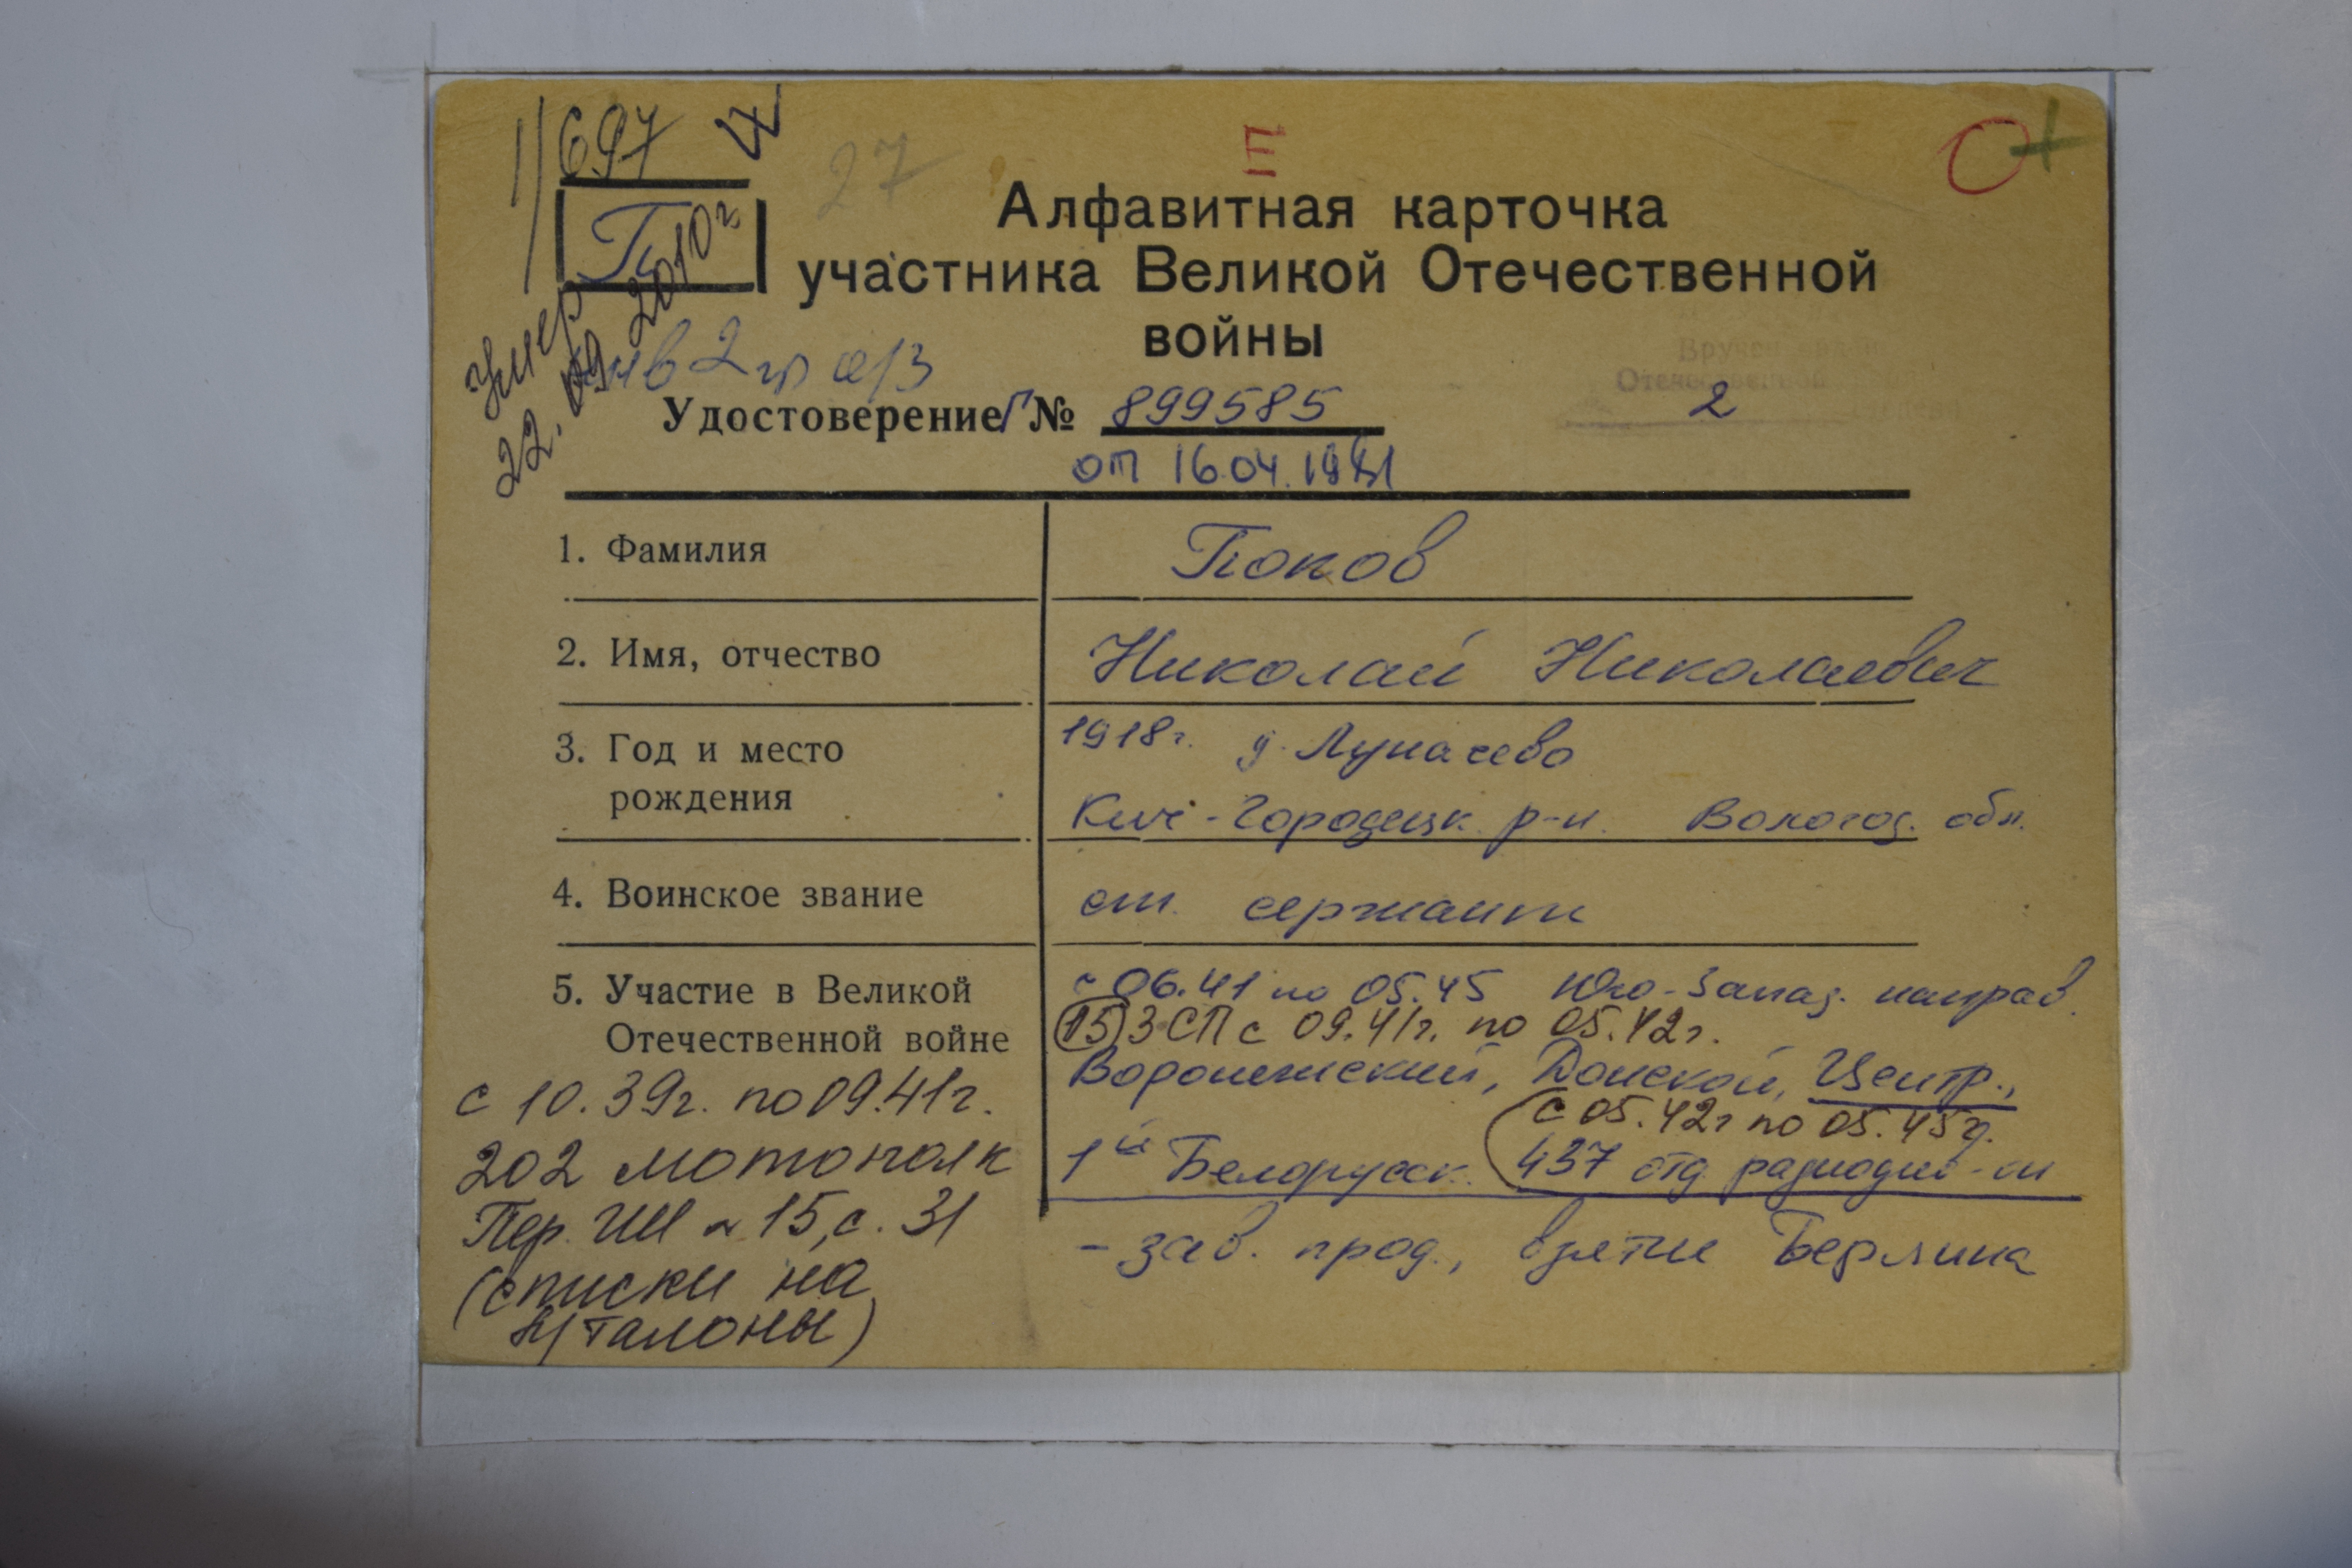 697
27
II
П
Алфавитная карточка
участника Великой Отечественной
войны
Умер
22.09.2010г
инв 2 гр о/з
Вручен
Отечественной
2
Удостоверение Г № 899585
от 16.04.1981
1. Фамилия
Попов
2. Имя, отчество
Николай Николаевич
3. Год и место
рождения
1918г. д. Лупачево
Кич-Городецк. р-н. Вологод. обл.
4. Воинское звание
ст. сержант
5. Участие в Великой
Отечественной войне
с 06.41 по 05.45 Юго-Запад. направ.
(15)3 СП с 09.41г. по 05.42г.
Воронежский, Донской, Центр.,
с 05.42г по 05.45г.
1й Белорусск. 437 отд радиодив-н
- зав. прод., взятие Берлина
с 10.39г. по 09.41г.
202 мотополк
Пер. ГШ № 15, с. 31
(списки на
в/талоны)